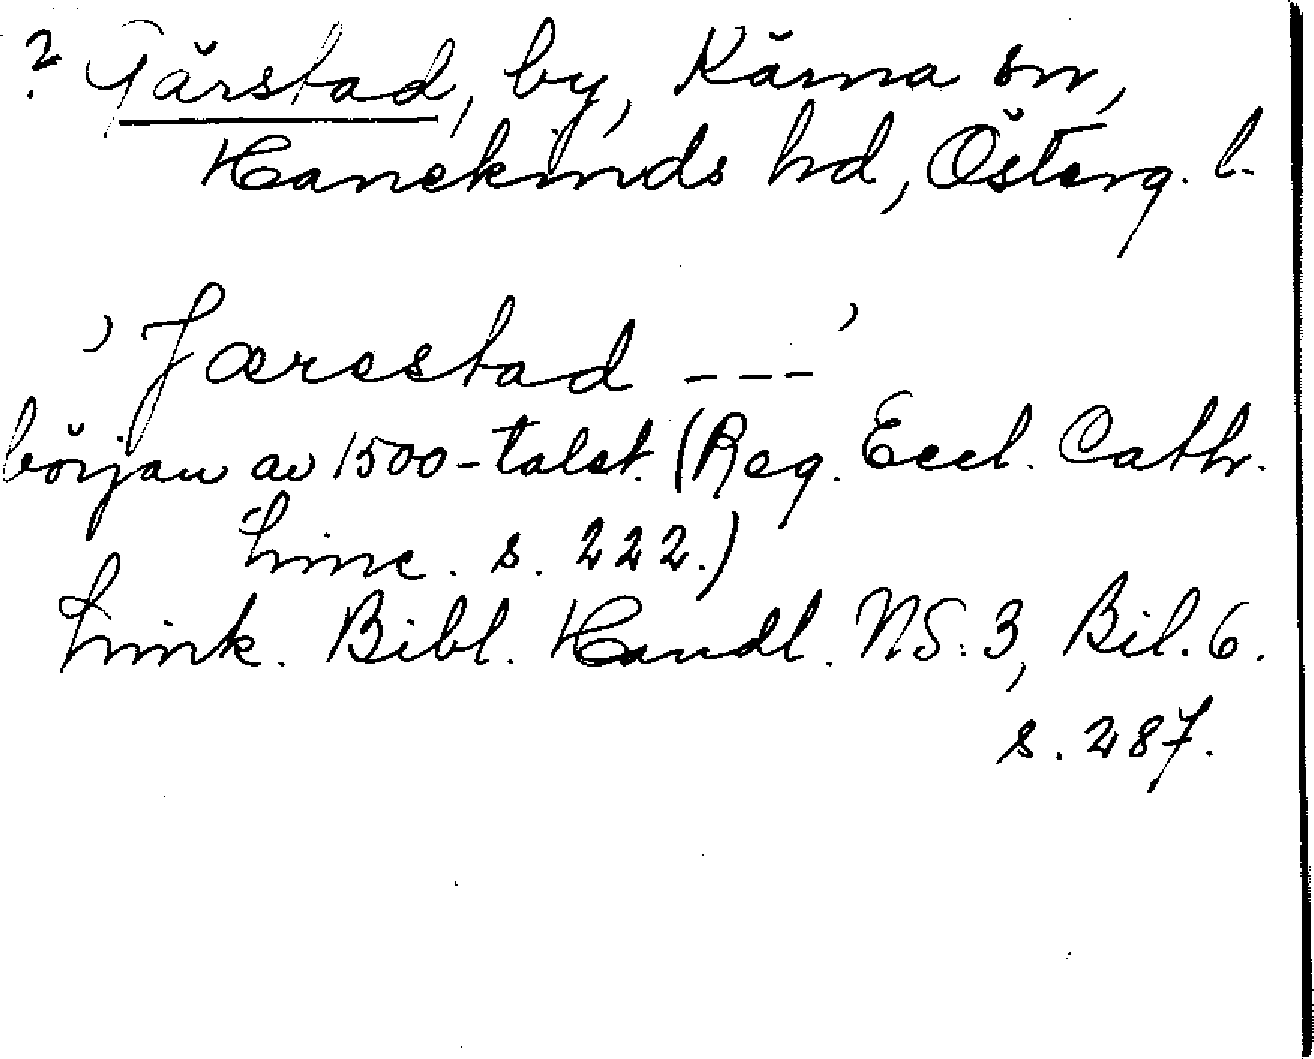 ? Gärstad, by, Kärna sn,
Hanekinds hd, Österg. l.
’Jærestad ---’
början av 1500-talet. (Reg. Eccl. Cath.
Linc. s. 222.)
Link. Bibl. Handl. NS. 3, Bil. 6.
s. 287.